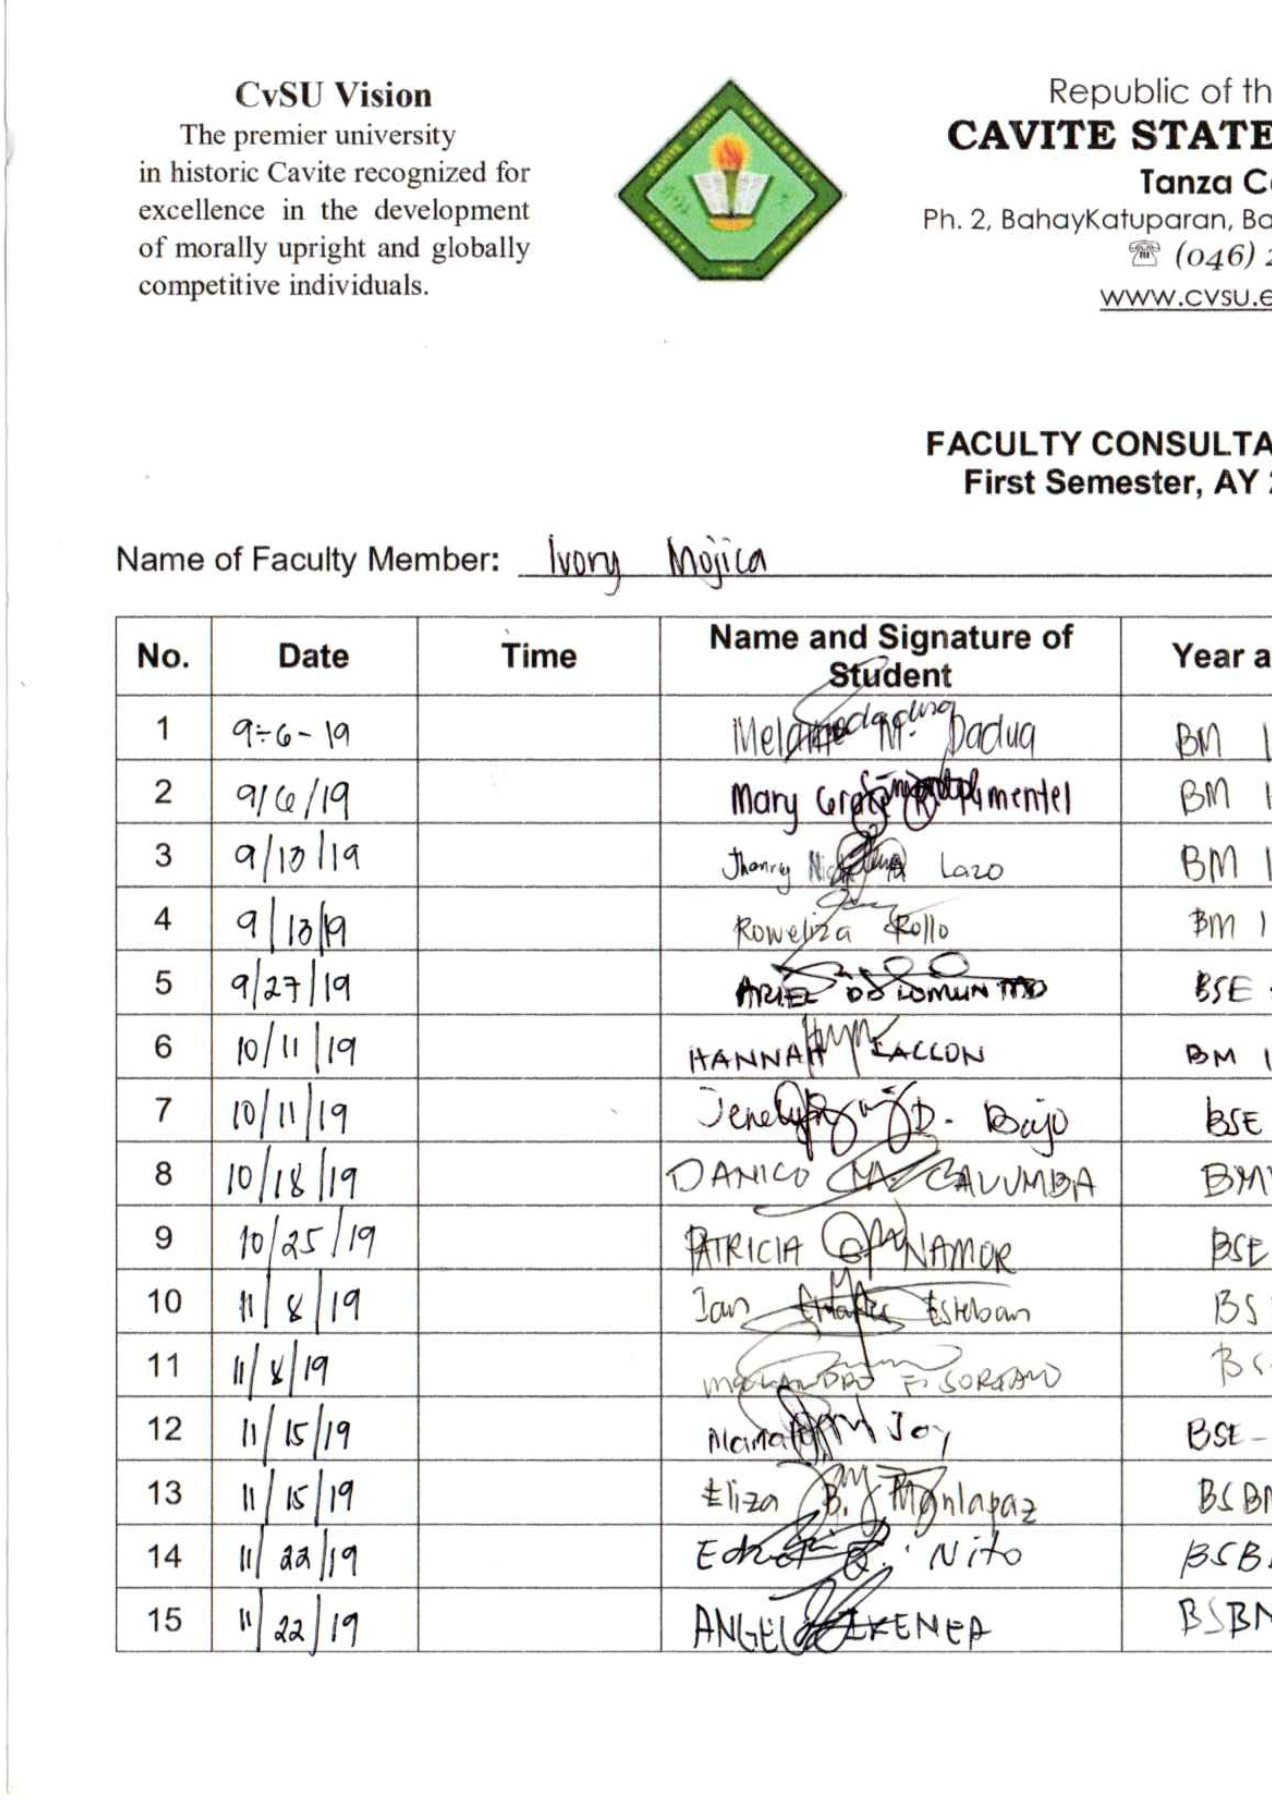 CvSU Vision
The premier university
in historic Cavite recognized for
excellence in the development
of morally upright and globally
competitive individuals.
CAVITE STATE UNIVERSITY
CAVITE
Republic of th
CAVITE STATE
Tanza C
Ph. 2, BahayKatuparan, Ba
☏ (046) 2
www.cvsu.e
FACULTY CONSULTA
First Semester, AY 2
Name of Faculty Member: Ivory Mojica
No. Date Time Name and Signature of Student Year a
1 9-6-19 M. Dadua BM 1
2 9/6/19 Mary Grace Pimentel BM 1
3 9/13/19 Jhonrey Lazo BM 1
4 9/13/19 Roweliza Rollo BM 1
5 9/27/19 ARIEL BSE
6 10/11/19 HANNAH BM 1
7 10/11/19 Jenelyn D. Bajo BSE
8 10/18/19 DANICO BM
9 10/25/19 PATRICIA NAMOR BSE
10 11/8/19 Ian Esteban BS
11 11/8/19 F. SORIANO BS
12 11/15/19 Joy BSE-
13 11/15/19 Eliza B. Manlapaz BSBM
14 11/22/19 Nito BSB
15 11/22/19 BSBM